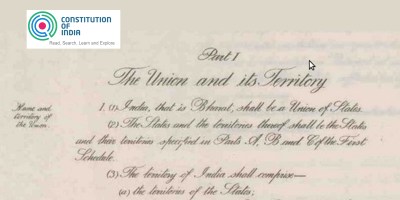 CONSTITUTION
OF
INDIA
Read, Search, Learn and Explore
Part I
The Union and its Territory
Name and
territory of
the Union.
1. (1) India, that is Bharat, shall be a Union of States.
(2) The States and the territories thereof shall be the States
and their territories specified in Parts A, B and C of the First
Schedule.
(3) The territory of India shall comprise—
(a) the territories of the States;